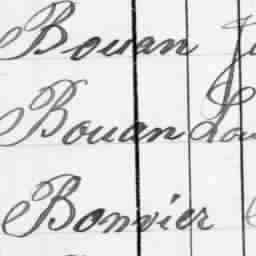 Bouan
Bouan Lou
Bonvier